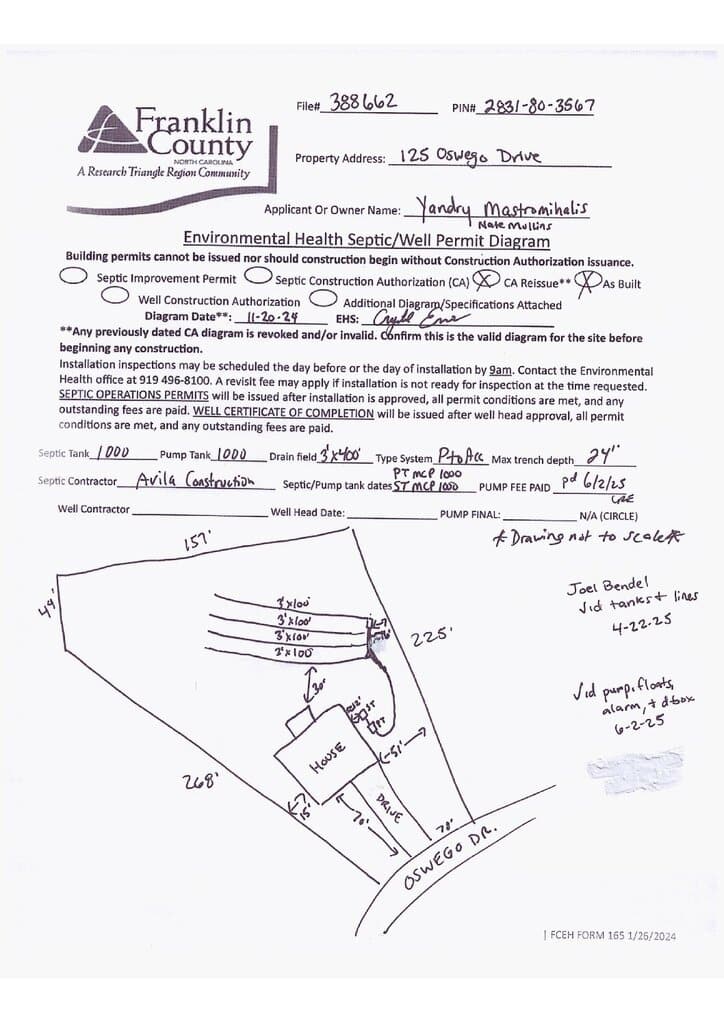 File# 388662 PIN# 2831-80-3567
Franklin
County
NORTH CAROLINA
A Research Triangle Region Community
Property Address: 125 Oswego Drive
Applicant Or Owner Name: Yandry Mastromihalis
Nate Mullins
Environmental Health Septic/Well Permit Diagram
Building permits cannot be issued nor should construction begin without Construction Authorization issuance.
Septic Improvement Permit Septic Construction Authorization (CA) CA Reissue** As Built
Well Construction Authorization Additional Diagram/Specifications Attached
Diagram Date**: 11-20-24 EHS:
**Any previously dated CA diagram is revoked and/or invalid. Confirm this is the valid diagram for the site before
beginning any construction.
Installation inspections may be scheduled the day before or the day of installation by 9am. Contact the Environmental
Health office at 919 496-8100. A revisit fee may apply if installation is not ready for inspection at the time requested.
SEPTIC OPERATIONS PERMITS will be issued after installation is approved, all permit conditions are met, and any
outstanding fees are paid. WELL CERTIFICATE OF COMPLETION will be issued after well head approval, all permit
conditions are met, and any outstanding fees are paid.
Septic Tank 1000 Pump Tank 1000 Drain field 3'x400' Type System PtoAcc Max trench depth 24"
PT MCP 1000
Septic Contractor Avila Construction Septic/Pump tank dates ST MCP 1000 PUMP FEE PAID pd 6/2/25
CRE
Well Contractor Well Head Date: PUMP FINAL: N/A (CIRCLE)
* Drawing not to scale *
157'
49'
3'x100'
3'x100'
3'x100'
3'x100'
225'
Joel Bendel
√id tanks + lines
4-22-25
30'
ST
PT
√id pump, floats,
alarm, + dbox
6-2-25
HOUSE
51'
268'
15'
70'
DRIVE
70'
OSWEGO DR.
FCEH FORM 165 1/26/2024